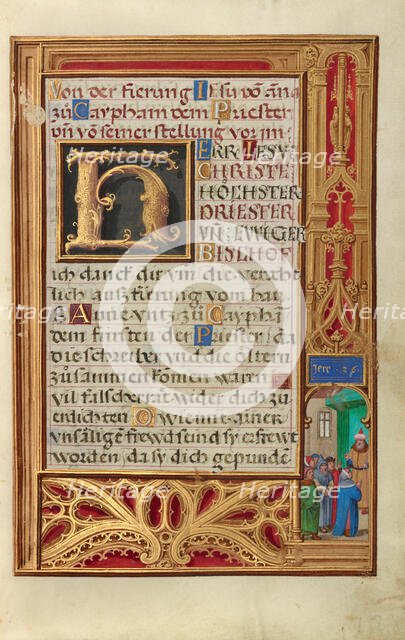 Von der fierung Jesu võ āña
zů Caypham dem Priester
vñ võ seiner stellung vor im
HERR JESV
CHRISTE
HÖCHSTER
PRIESTER
VÑ EWIGER
BISCHOF
ich danck dir vm die veracht
lich ausz fürung vom hau
Anne vntz zů Caypha
dem fürsten der Priester da
die schreiber vnd die öltern
zůsammen komen warn
vil falscherrat wider dich zů
endichten O wie mit ainer
vnsälige frewd seind sy erfrewt
worden da sy dich gepunde
Jere · 26 ·
Heritage
Heritage
Heritage
Heritage
Heritage